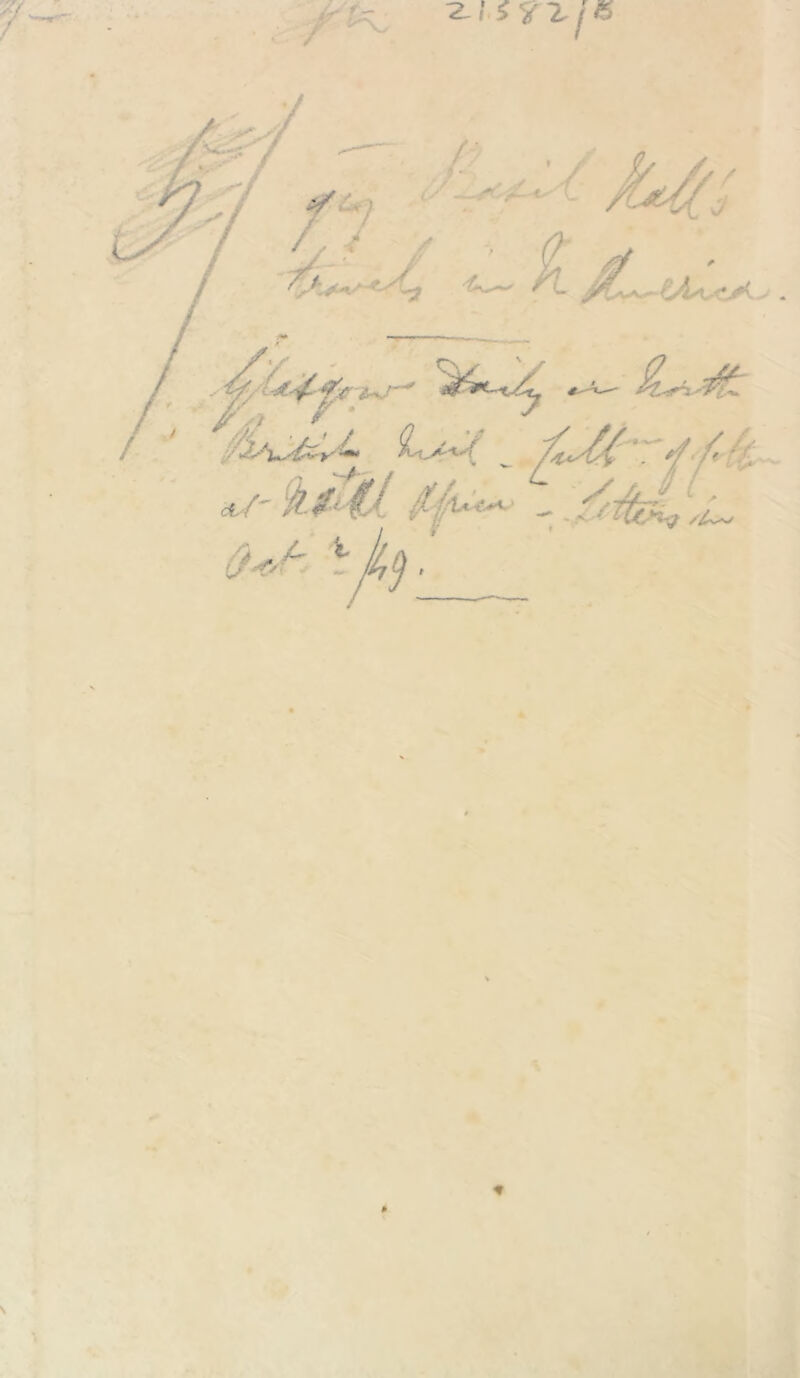 21582/B
Basil Hall's
travels in N America.
Glasgow Daily or North
British Mail
at Natal Africa - Letters in
Oct. 2/49.